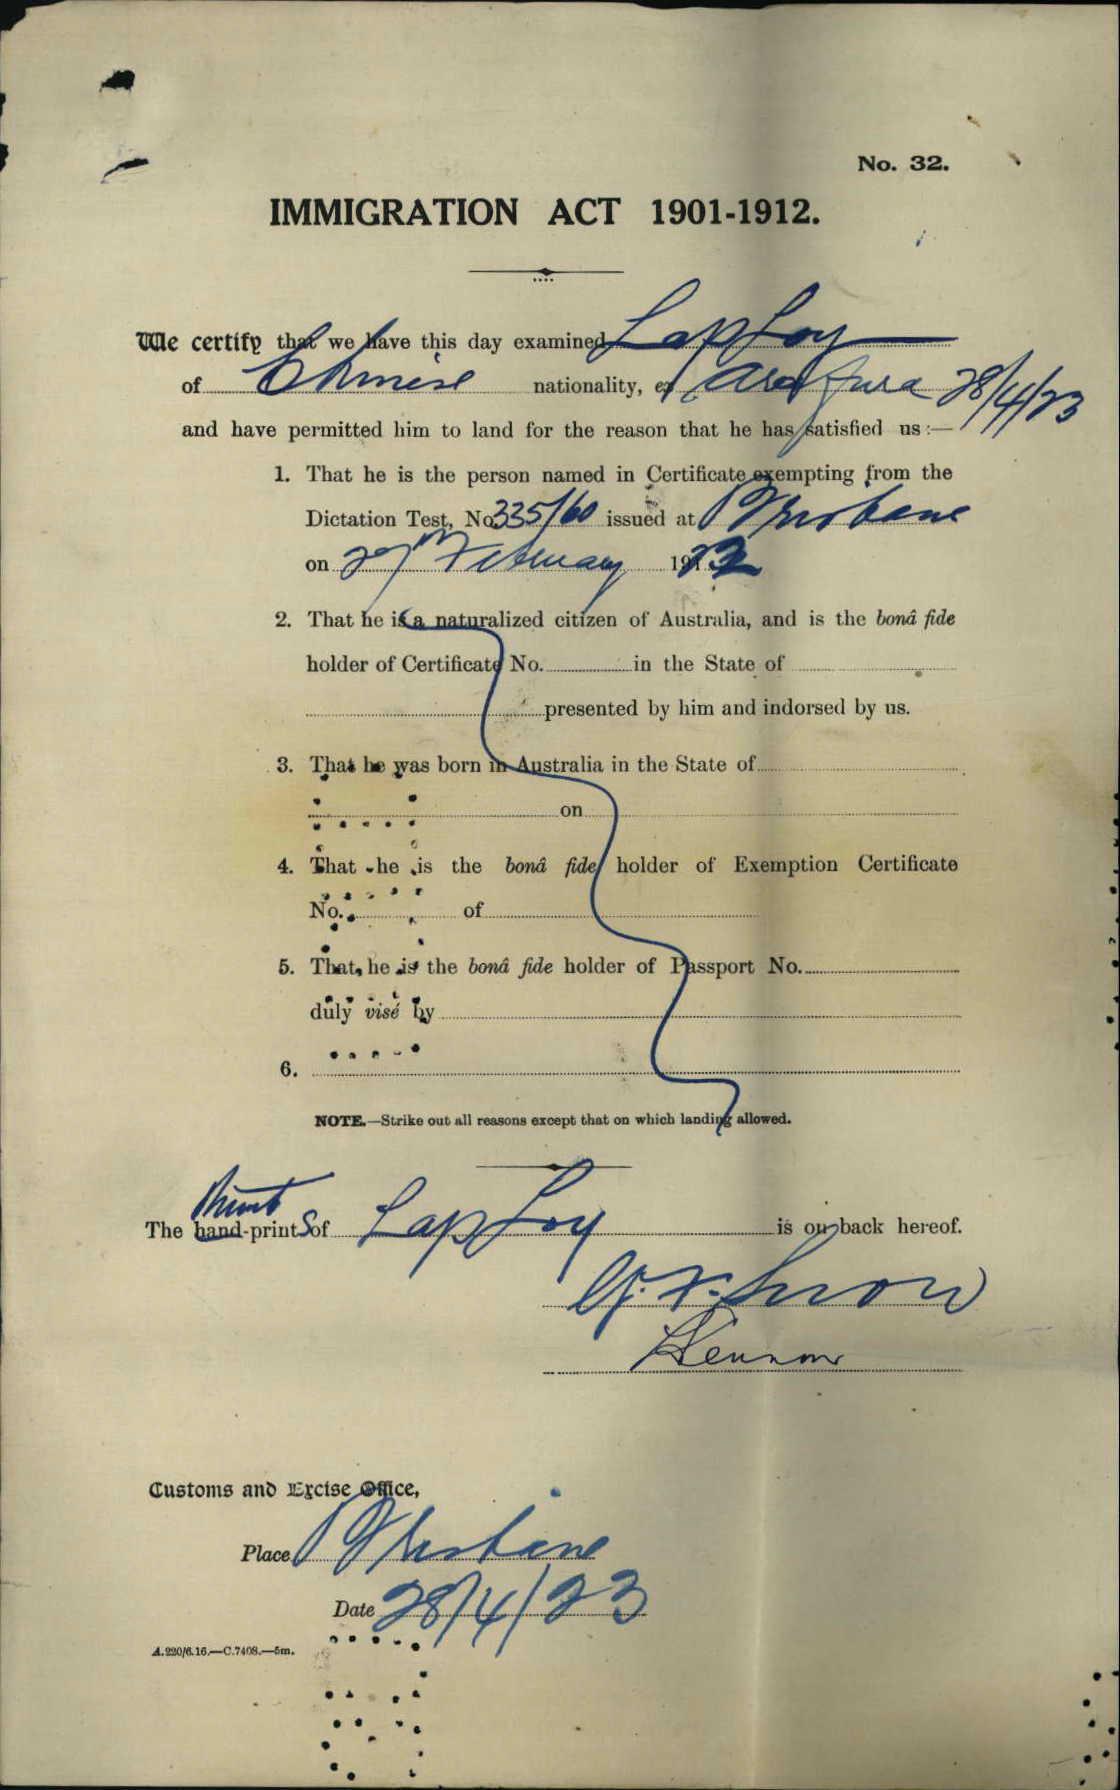 No. 32.
IMMIGRATION ACT 1901-1912.
We certify that we have this day examined Lap Loy
of Chinese nationality, ex Arafura 28/4/23
and have permitted him to land for the reason that he has satisfied us :—
1. That he is the person named in Certificate exempting from the
Dictation Test, No. 335/60 issued at Brisbane
on 27th February 1922
2. That he is a naturalized citizen of Australia, and is the bonâ fide
holder of Certificate No. in the State of
presented by him and indorsed by us.
3. That he was born in Australia in the State of
on
4. That he is the bonâ fide holder of Exemption Certificate
No. of
5. That he is the bonâ fide holder of Passport No.
duly visé by
6.
NOTE.—Strike out all reasons except that on which landing allowed.
The hand-prints of Lap Loy is on back hereof.
Snow
Customs and Excise Office,
Place Brisbane
Date 28/4/23
A.220/6.16.—C.7408.—5m.